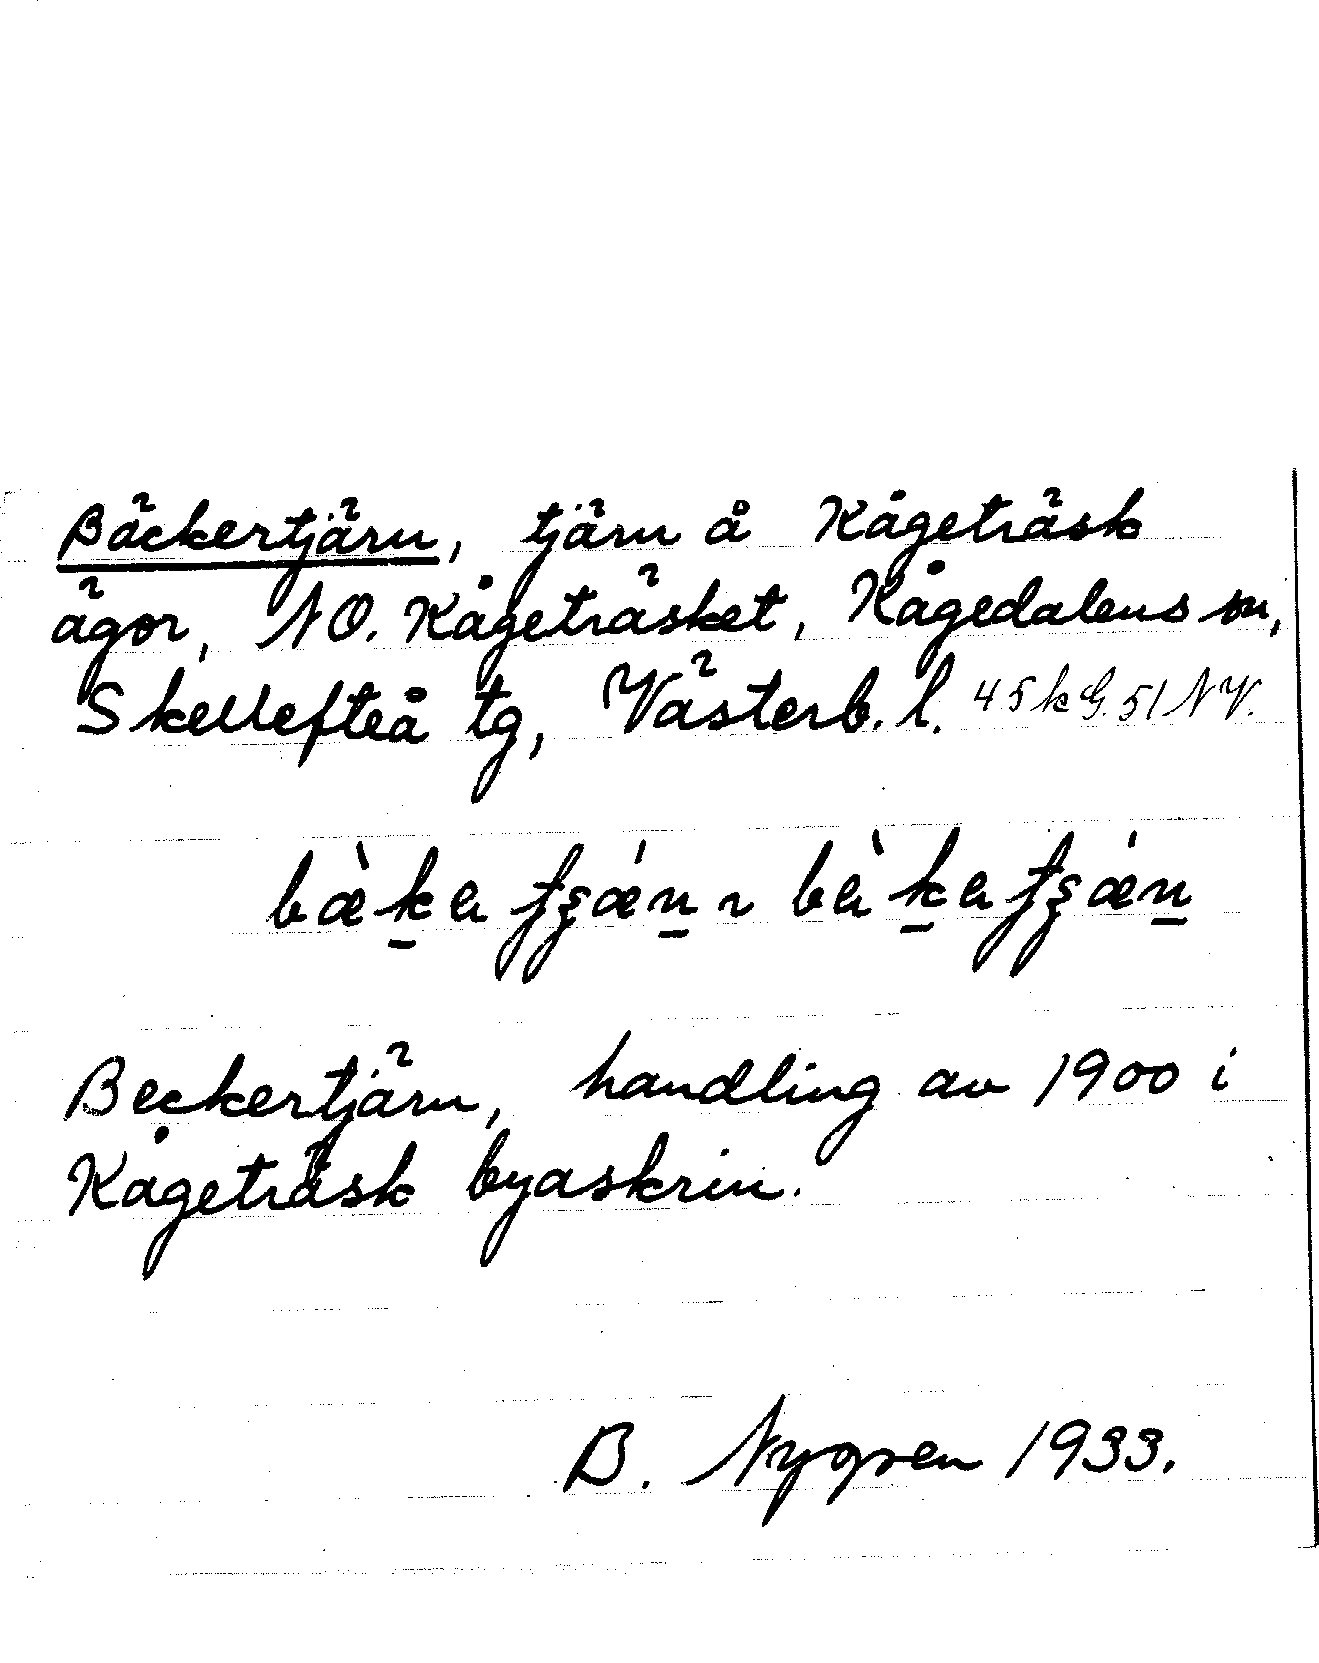 Bäckertjärn, tjärn å Kågeträsk
ägor, NO. Kågeträsket, Kågedalens sn,
Skellefteå tg, Västerb. l. 45 k G. 51 NV.
Beckertjärn, handling av 1900 i
Kågeträsk byaskrin.
B. Nygren 1933.